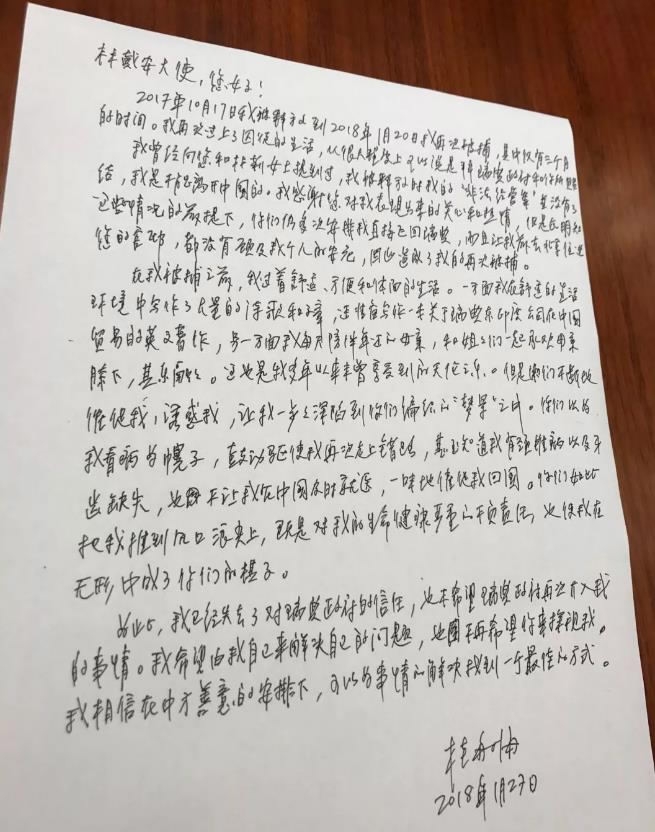 林戴安大使，您好！
2017年10月17日我被释放到2018年1月20日我再次被捕，其中仅有三个月
的时间。我再次过上了囚徒的生活，从很大程度上可以说是拜瑞典政府和你所
我曾经向您和林新女士提到过，我被释放时我的“非法经营案”并没有了
结，我是不能离开中国的。我感谢您对我在提出来的关心和热情，但是在明知
这些情况的前提下，你们仍多次安排我直接飞回瑞典，而且让我前去北京住进
您的官邸，都没有顾及我个人的安危，因此造成了我的再次被捕。
在我被捕之前，我过着舒适、方便和体面的生活。一方面我在舒适的生活
环境中写作了大量的诗歌和文章，还准备写作一本关于瑞典东印度公司在中国
贸易的英文著作，另一方面我每天陪伴年迈的母亲，和姐姐们一起承欢母亲
膝下，其乐融融。这也是我多年以来未曾享受到的天伦之乐。但是你们不断地
催促我，诱惑我，让我一步步深陷到你们编织的“梦想”之中。你们以为
我看病为幌子，鼓动驱使我再次走上错路，甚至知道我有颈椎病以及牙
齿缺失，也不让我在中国及时就医，一味地催促我回国。你们如此
把我推到风口浪尖上，既是对我的生命健康严重的不负责任，也使我在
无形中成了你们的棋子。
为此，我已经失去了对瑞典政府的信任，也不希望瑞典政府再次介入我
的事情。我希望由我自己来解决自己的问题，也不再希望你来探视我。
我相信在中方善意的安排下，可以为事情的解决找到一个最佳的方式。
桂敏海
2018年1月27日